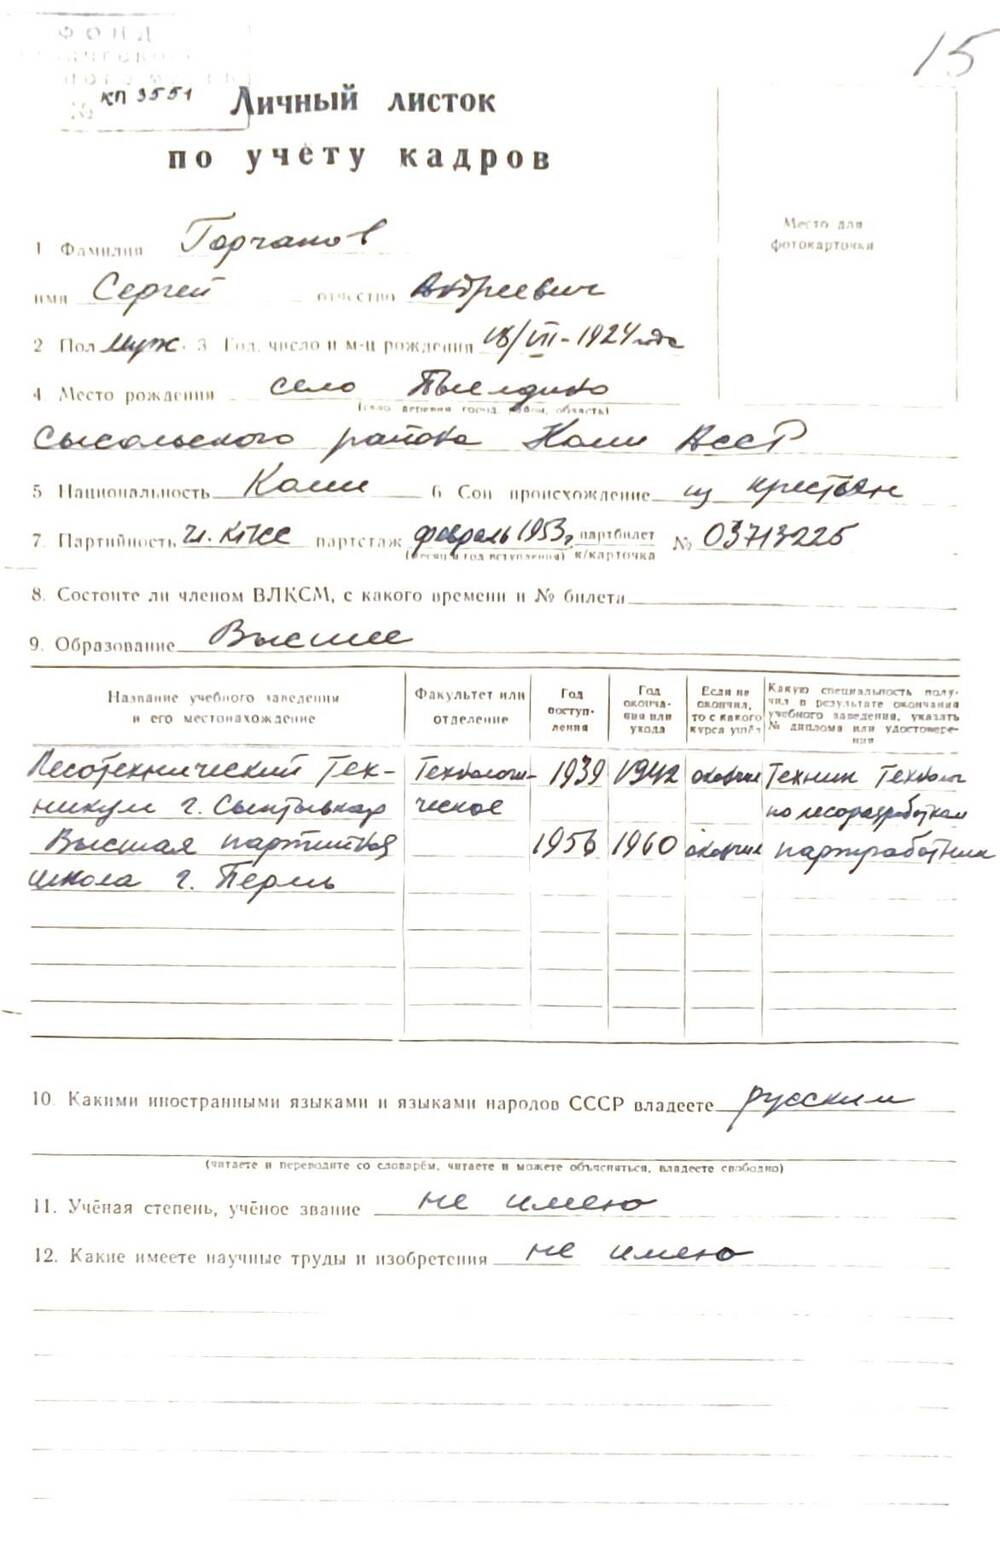 ФОНД
№ КП 3551
15
Личный листок
по учёту кадров
Место для
фотокарточки
1 Фамилия Горчаков
имя Сергей отчество Андреевич
2 Пол Муж. 3 Год, число и м-ц рождения 18/VII-1924 года
4 Место рождения село Пыелдино
(село, деревня, город, район, область)
Сысольского района Коми АССР
5 Национальность Коми 6 Соц происхождение из крестьян
7. Партийность чл. КПСС партстаж февраль 1953 г. партбилет № 03713225
(месяц и год вступления) к/карточка
8. Состоите ли членом ВЛКСМ, с какого времени и № билета
9. Образование Высшее
Название учебного заведения
и его местонахождение
Факультет или
отделение
Год
поступ-
ления
Год
оконча-
ния или
ухода
Если не
окончил,
то с какого
курса ушёл
Какую специальность полу-
чил в результате окончания
учебного заведения, указать
№ диплома или удостовере-
ния
Лесотехнический Тех- Технологи- 1939 1942 окончил Техник Технолог
никум г. Сыктывкар ческое по лесоразработкам
Высшая партийная 1956 1960 окончил партработник
школа г. Пермь
10. Какими иностранными языками и языками народов СССР владеете русским
(читаете и переводите со словарём, читаете и можете объясняться, владеете свободно)
11. Учёная степень, учёное звание не имею
12. Какие имеете научные труды и изобретения не имею